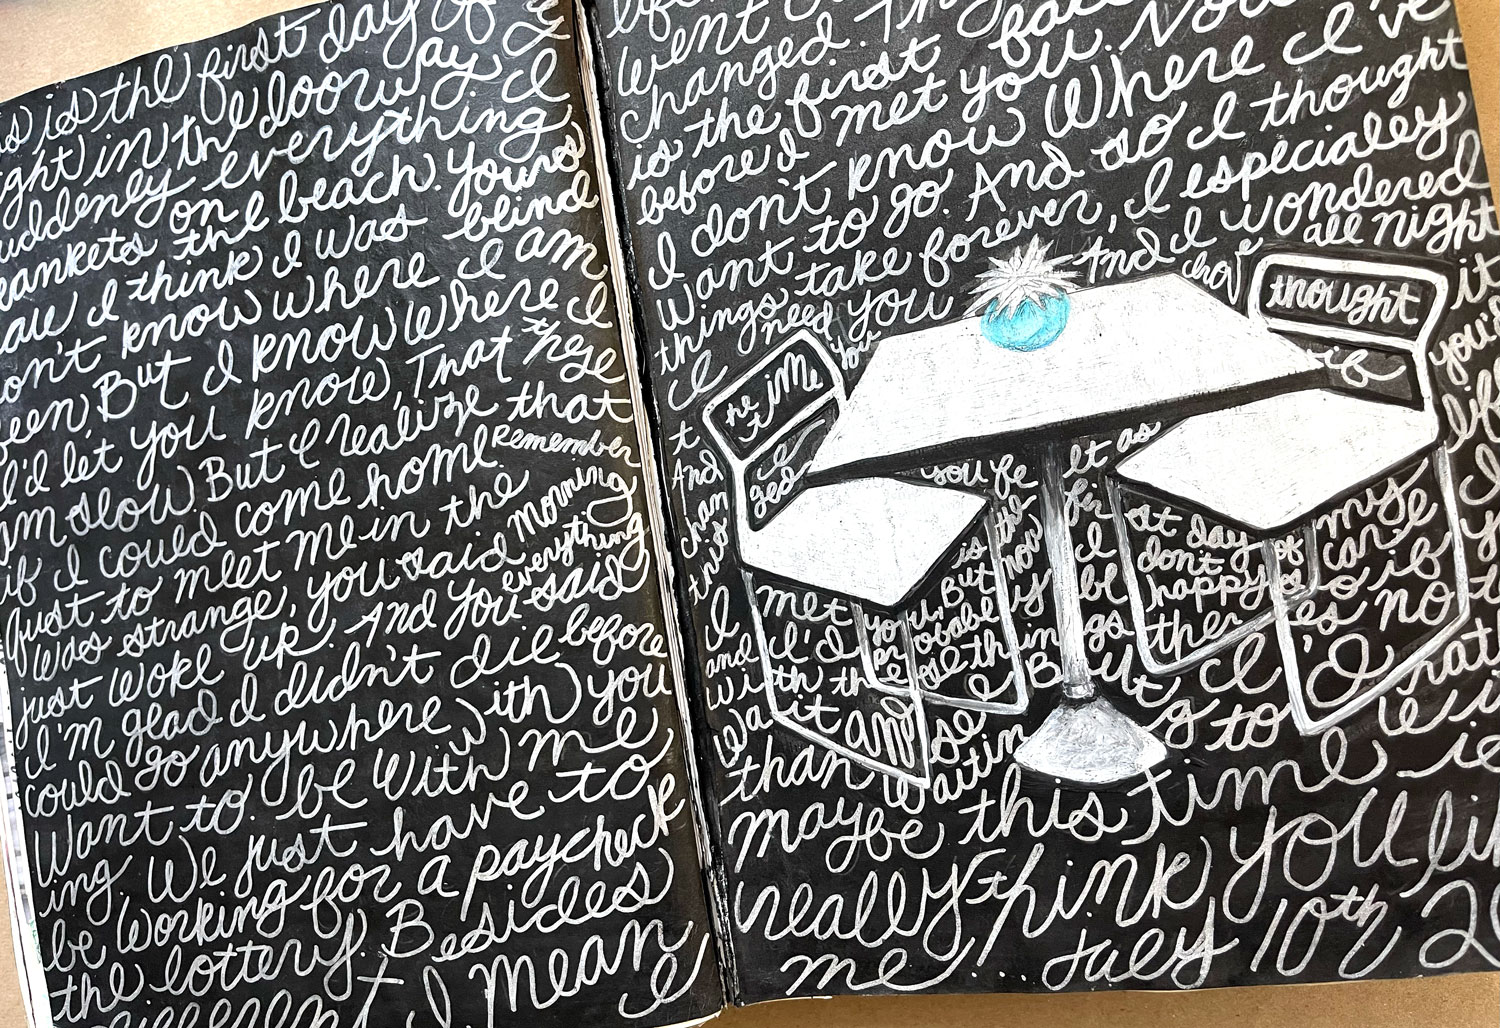 is is the first day of
ght in the doorway
uddenly everything I
lankets on the beach. Yours
saw I think I was blind
don't know where I am
been. But I know where I
I'd let you know, That these
am slow. But I realize that
if I could come home Remember
just to meet me in the
was strange, you said Morning
just woke up. And you said everything
I'm glad I didn't die before
could go anywhere with you
Want to. be with me
ing. We just have to
be working for a paycheck
the lottery. Besides
different I mean
I
went
changed.
is the first
before I met you. Now
I don't know where I've
Want to go. And so I thought
things take forever, I especialey
I need you And I wondered
all night
the time thought it
but if you'd
t life
And ged you fe lt as
chan is the fir st day of my I
this But now I don't care
I met you. probably be happy so if
and I'd the no
with these things But I I'd hat
wait and se
than waiting to
maybe this time is
really think you li
me... July 10th 20